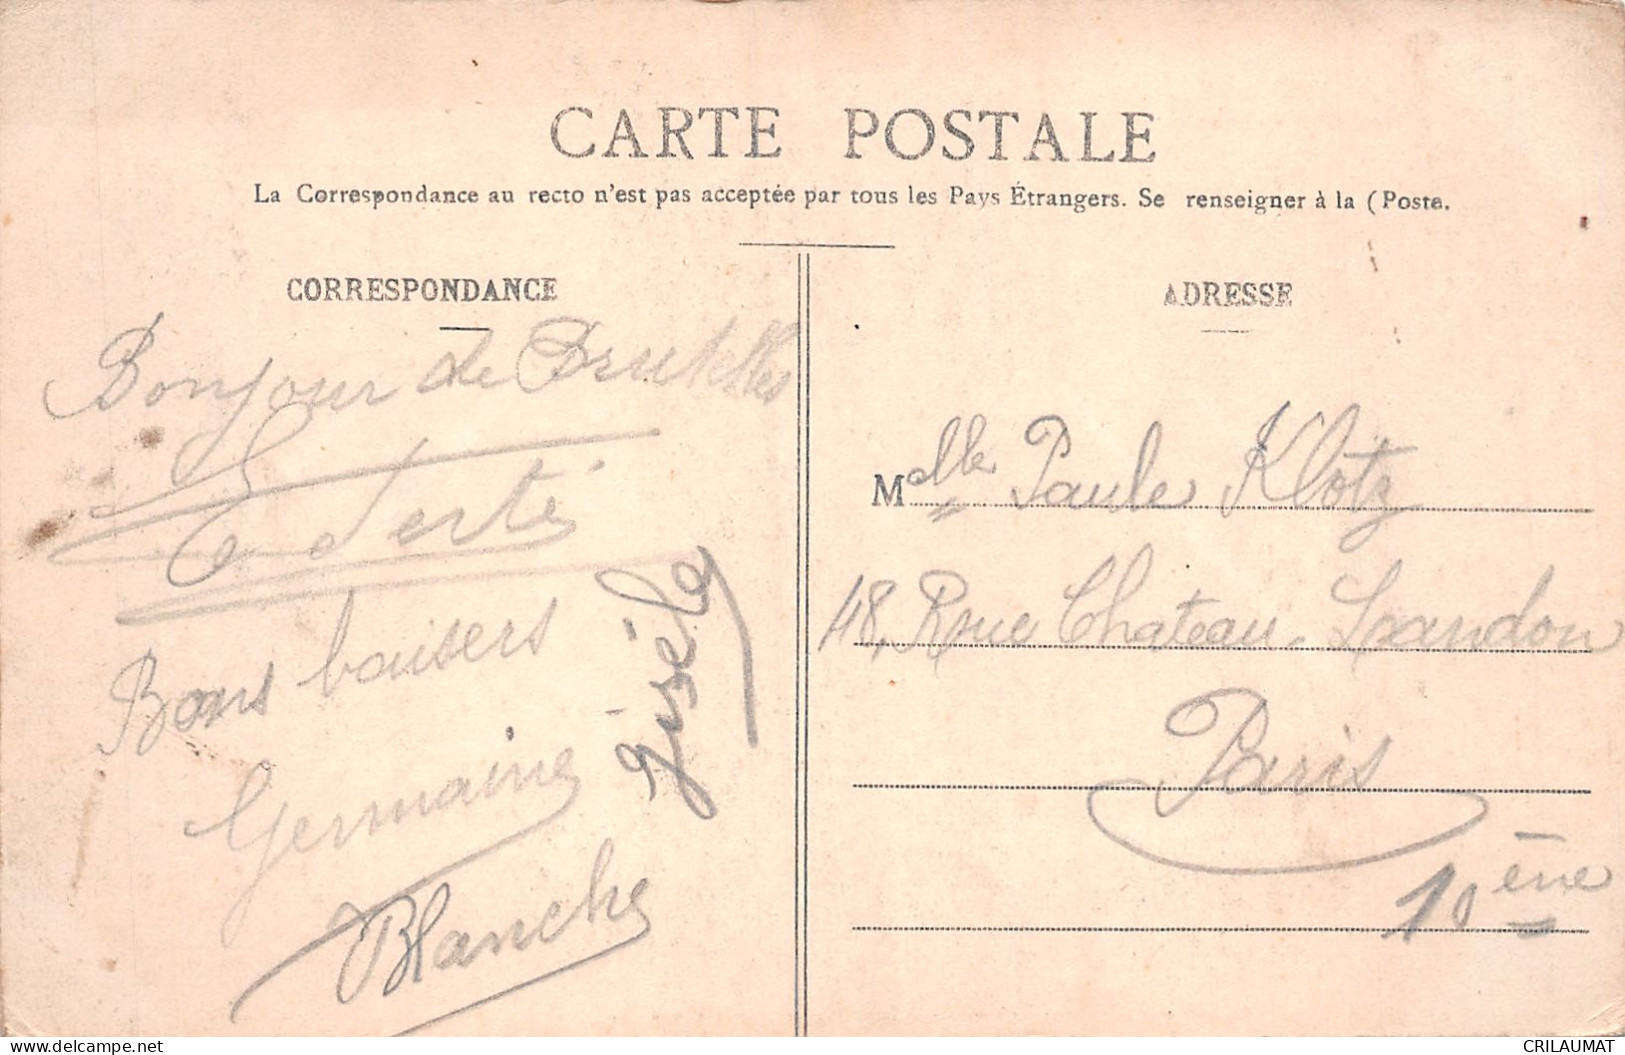 CARTE POSTALE
La Correspondance au recto n'est pas acceptée par tous les Pays Étrangers. Se renseigner à la (Poste.
CORRESPONDANCE
Bonjour de Bruxelles
Bons baisers
Germaine
Blanche
Gisèle
ADRESSE
Melle Paule Klotz
48, Rue Chateau-Landon
Paris
10ème
CRILAUMAT